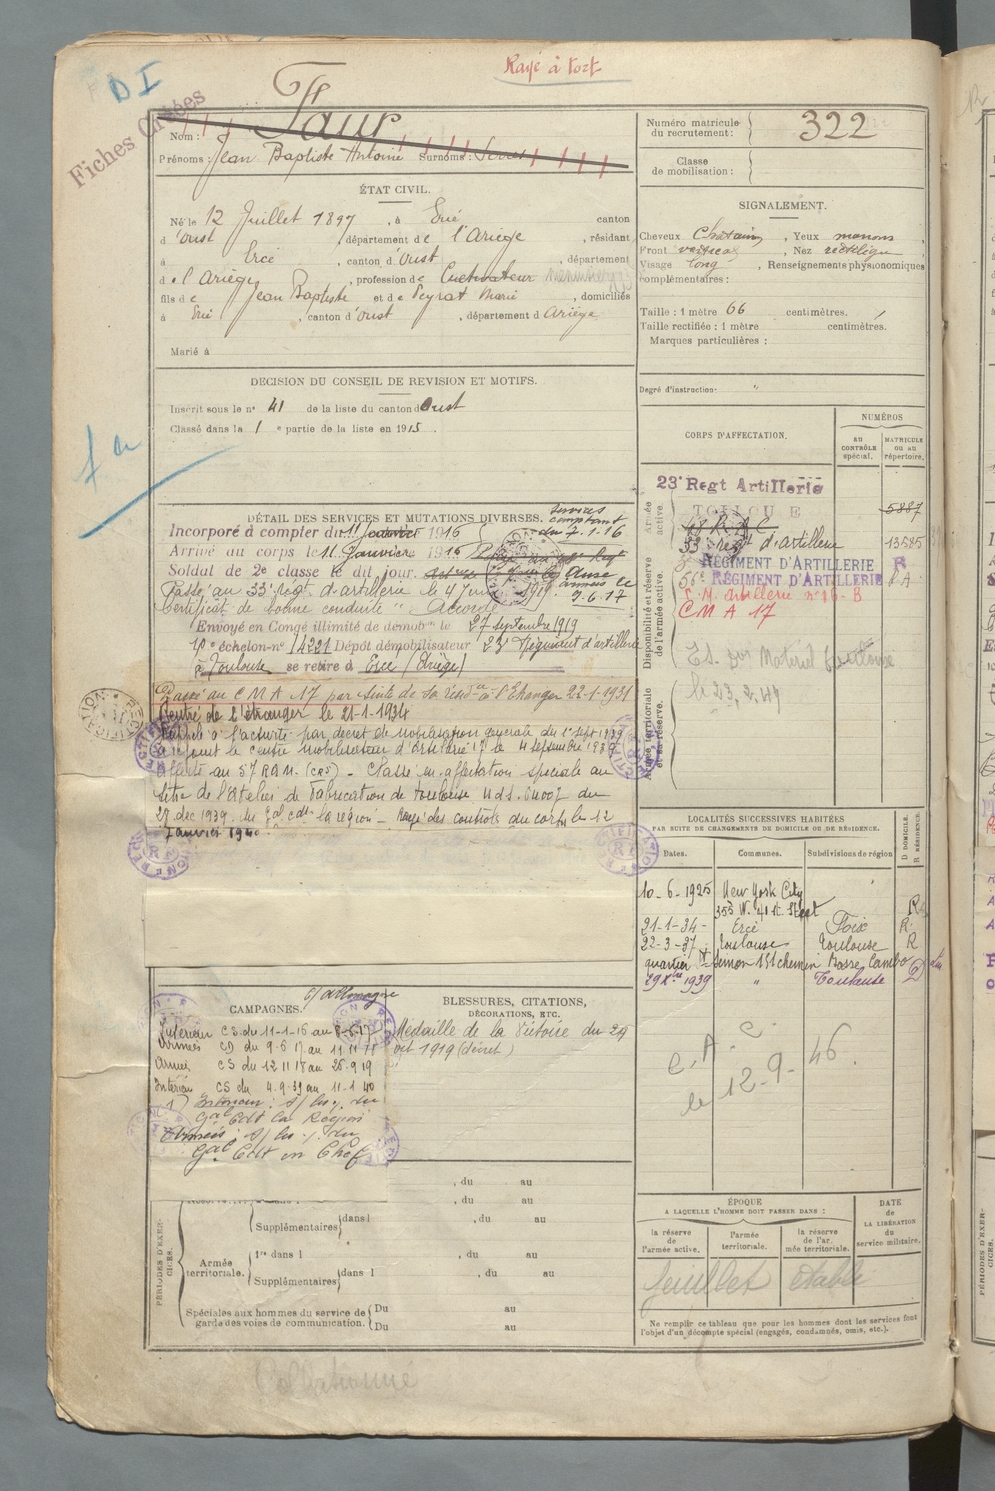 Rayé à tort
DI
Fiches Créées
Nom : Faur
Prénoms : Jean Baptiste Antoine Surnoms :
Numéro matricule du recrutement : 322
Classe de mobilisation :
ÉTAT CIVIL.
Né le 12 Juillet 1897, à Ercé canton
d'Oust, département de l'Ariège, résidant
à Ercé, canton d'Oust, département
de l'Ariège, profession de Cultivateur
fils de Jean Baptiste et de Peyrat Marie, domiciliés
à Ercé, canton d'Oust, département d Ariège
Marié à
SIGNALEMENT.
Cheveux Chatains, Yeux marrons
Front vertical, Nez rectiligne
Visage long, Renseignements physionomiques
complémentaires :
Taille : 1 mètre 66 centimètres.
Taille rectifiée : 1 mètre centimètres.
Marques particulières :
Degré d'instruction : "
DECISION DU CONSEIL DE REVISION ET MOTIFS.
Inscrit sous le n° 41 de la liste du canton d Oust
Classé dans la 1e partie de la liste en 1915.
DÉTAIL DES SERVICES ET MUTATIONS DIVERSES.
Services comptant du 7.1.16
Incorporé à compter du 11 Janvier 1916
Arrivé au corps le 11 Janvier 1916
Soldat de 2e classe le dit jour.
Passé au 33e Régt d'artillerie le 4 juin 1919
Certificat de bonne conduite " Accordé "
Envoyé en Congé illimité de démobon le 27 septembre 1919
échelon n° 14221 Dépôt démobilisateur 23 Régiment d'artillerie
à Toulouse se retire à Ercé (Ariège)
Passé au C M A 17 par suite de sa résidce à l'Etranger 22-1-1931
Rentré de l'étranger le 21-1-1934
Rappelé à l'activité par décret de mobilisation générale du 1er sept 1939
a rejoint le centre mobilisateur d'Artillerie 17 le 4 septembre 1939
Affecté au 57 RAM. - Classé en affectation spéciale au
titre de l'Atelier de Fabrication de Toulouse
27 dec 1939. du Gal cdt la région - Rayé des controls du corps le 12
Janvier 1940
CORPS D'AFFECTATION.
NUMÉROS
AU CONTRÔLE spécial.
MATRICULE OU AU répertoire.
Armée active.
23e Regt Artillerie
TOULOUSE
5887
33 regt d'artillerie 13585
Disponibilité et réserve de l'armée active.
RÉGIMENT D'ARTILLERIE R
56e RÉGIMENT D'ARTILLERIE
C.M. Artillerie n° 16-B
C M A 17
Armée territoriale et sa réserve.
le 23.2.49
LOCALITÉS SUCCESSIVES HABITÉES
PAR SUITE DE CHANGEMENTS DE DOMICILE OU DE RÉSIDENCE.
D DOMICILE. R RÉSIDENCE.
Dates. Communes. Subdivisions de région
10-6-1925 New York City
353 W. 41 st. Street R
21-1-34 - Ercé Foix R
22-3-37 Toulouse Toulouse R
quartier St Simon 151 chemin
1939 " Toulouse D
C. A. C.
le 12-9-46.
CAMPAGNES.
c/ allemagne
Intérieur CS du 11-1-16 au 8-6-17
Armées CD du 9-6-17 au 11 11 18
Armées CS du 12 11 18 au 26-9 19
Intérieur CS du 4-9-39 au 11-1 40
Gal Cdt la Région
Gal Cdt en Chef
BLESSURES, CITATIONS, DÉCORATIONS, ETC.
Médaille de la Victoire du 29
oct 1919 (décret)
PÉRIODES D'EXERCICES.
, du au
, du au
Supplémentaires dans l , du au
Armée territoriale.
1re dans l , du au
Supplémentaires dans l , du au
Spéciales aux hommes du service de garde des voies de communication.
Du au
Du au
ÉPOQUE
A LAQUELLE L'HOMME DOIT PASSER DANS :
la réserve de l'armée active.
l'armée territoriale.
la réserve de l'armée territoriale.
DATE de LA LIBÉRATION du service militaire.
Ne remplir ce tableau que pour les hommes dont les services font
l'objet d'un décompte spécial (engagés, condamnés, omis, etc.).
Collationné